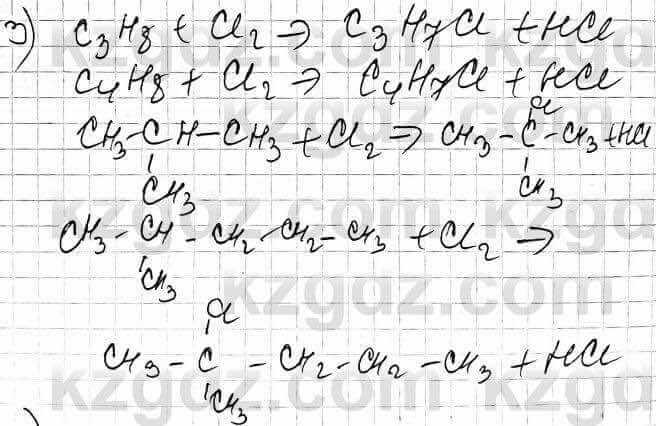 3) C₃H₈ + Cl₂ → C₃H₇Cl + HCl
C₄H₈ + Cl₂ → C₄H₇Cl + HCl
Cl
CH₃-CH-CH₃ + Cl₂ → CH₃-C-CH₃ + HCl
CH₃ CH₃
CH₃-CH-CH₂-CH₂-CH₃ + Cl₂ →
CH₃
Cl
CH₃-C-CH₂-CH₂-CH₃ + HCl
CH₃
kzgdz.com